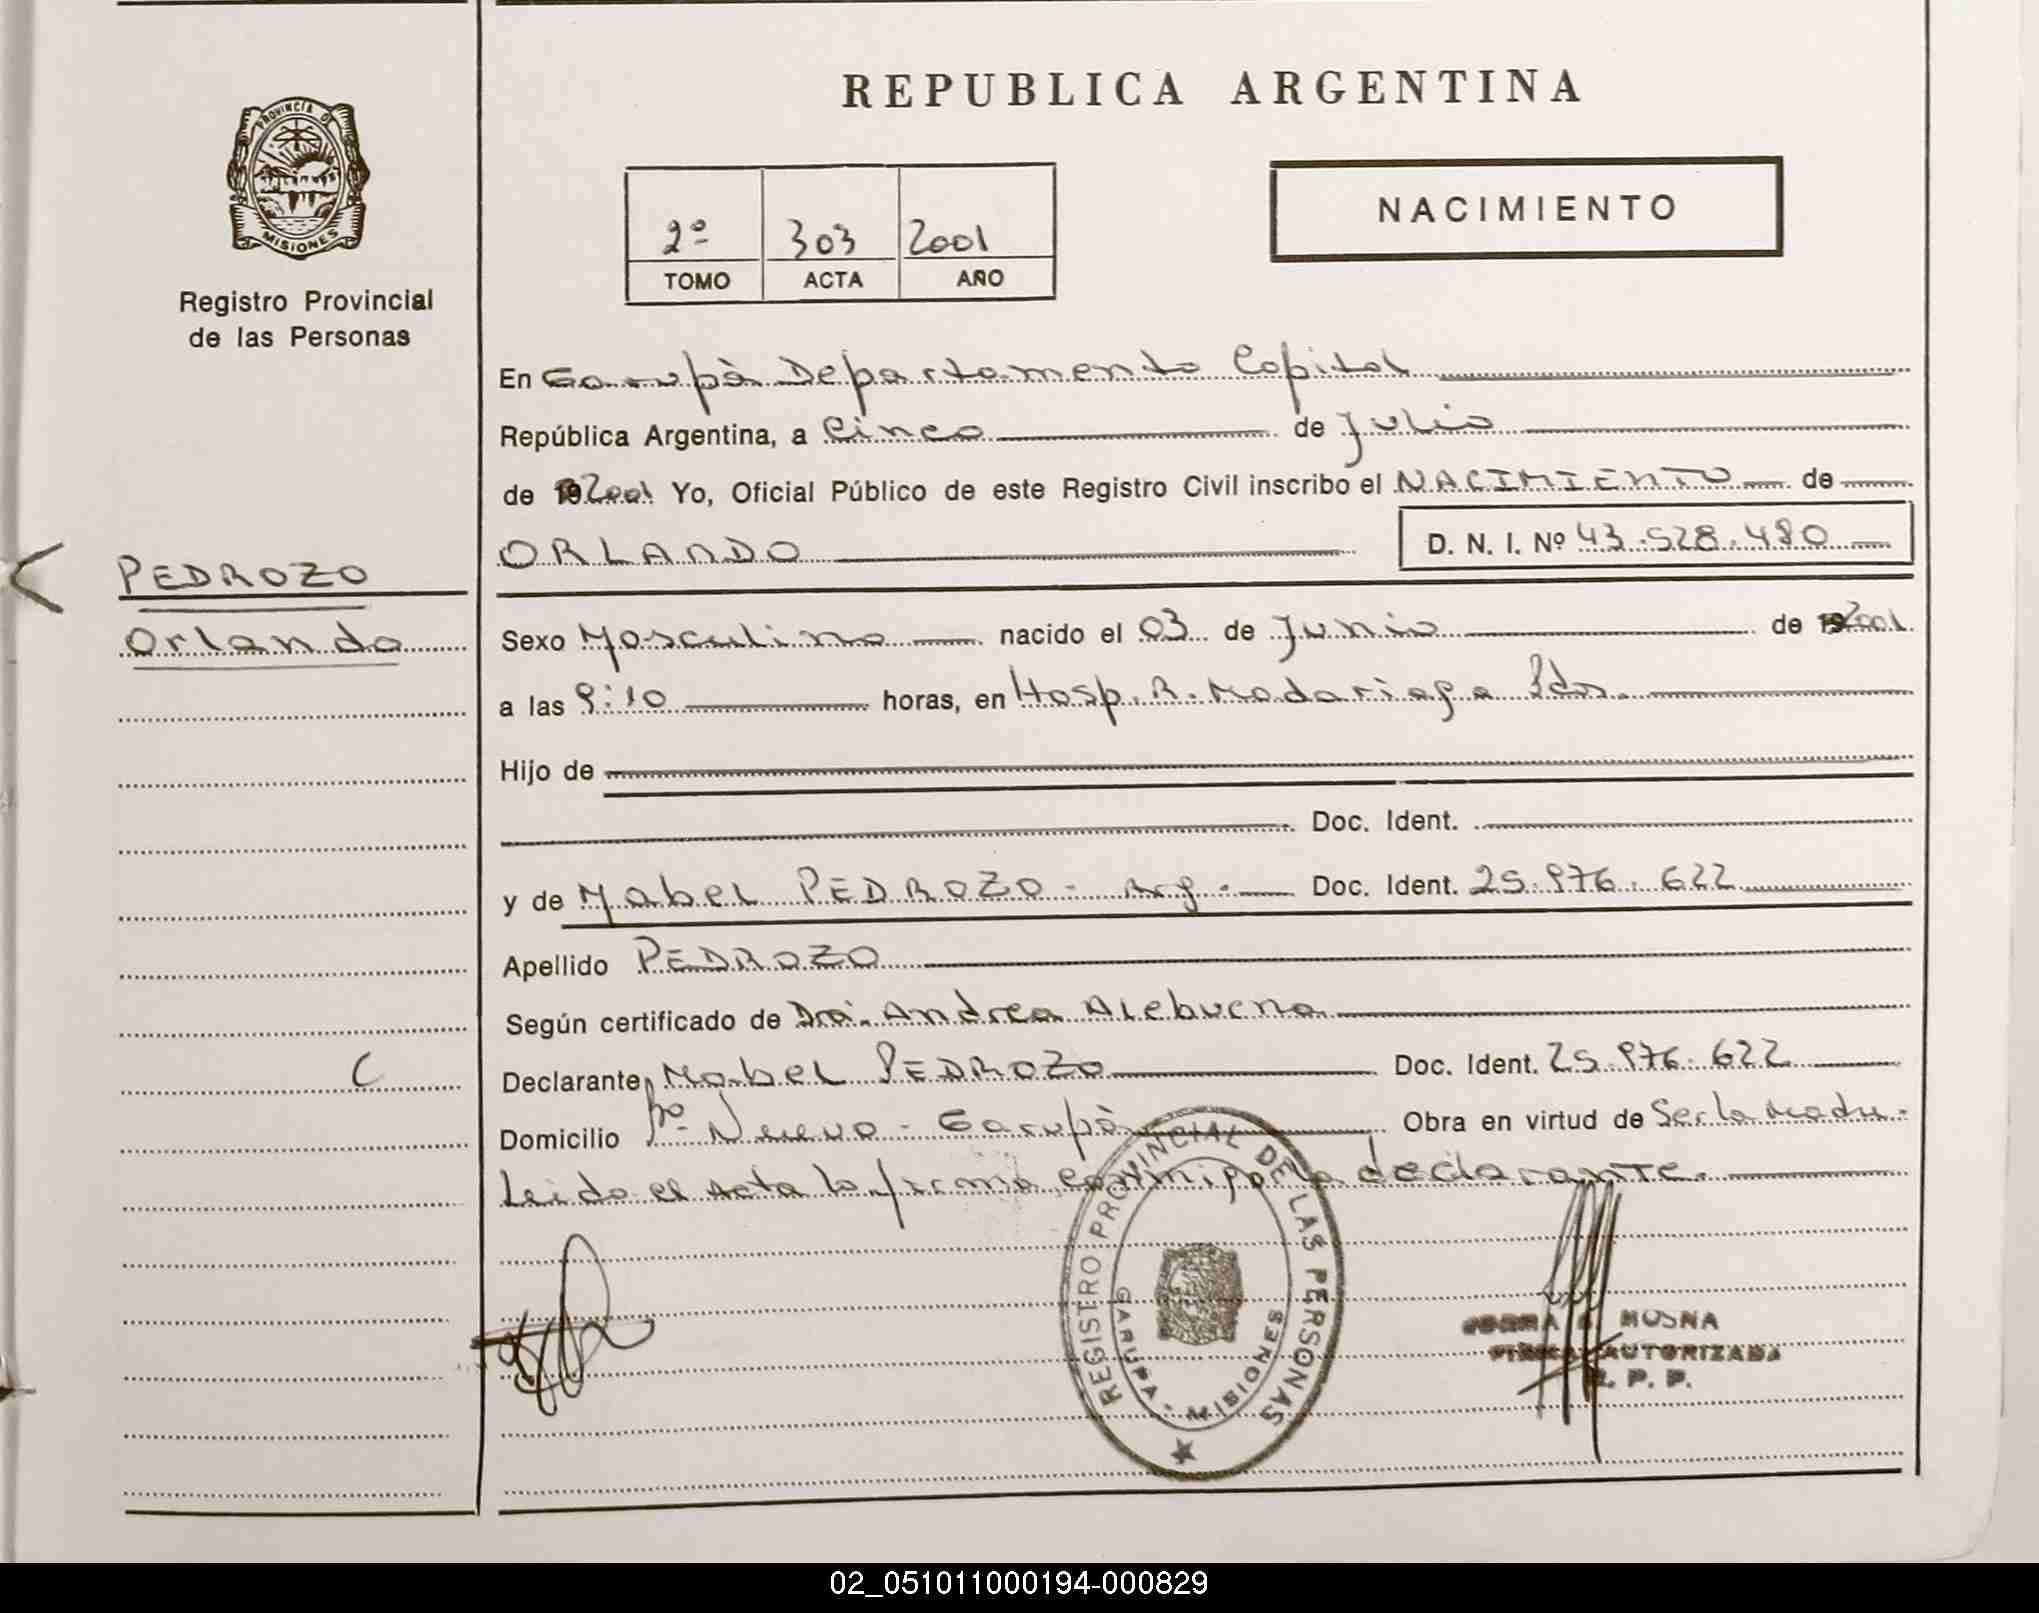 REPUBLICA ARGENTINA
PROVINCIA DE
MISIONES
Registro Provincial
de las Personas
2º 303 2001
TOMO ACTA AÑO
NACIMIENTO
En Garupà Departamento Capital
República Argentina, a Cinco de Julio
de 2001 Yo, Oficial Público de este Registro Civil inscribo el NACIMIENTO de
ORLANDO D. N. I. Nº 43.528.480
PEDROZO
Orlando
Sexo Masculino nacido el 03 de Junio de 2001
a las 9:10 horas, en Hosp. R. Madariaga Pdas.
Hijo de
Doc. Ident.
y de Mabel PEDROZO - Arg. - Doc. Ident. 25.976.622
Apellido PEDROZO
Según certificado de Dra. Andrea Alebuena
C
Declarante Mabel PEDROZO Doc. Ident. 25.976.622
Domicilio Bº Nuevo - Garupà Obra en virtud de Ser la Madre.
Leido el Acta la firma conmigo la declarante.
REGISTRO PROVINCIAL DE LAS PERSONAS
GARUPA - MISIONES
MOSNA
FIRMA AUTORIZADA
R. P. P.
02_051011000194-000829